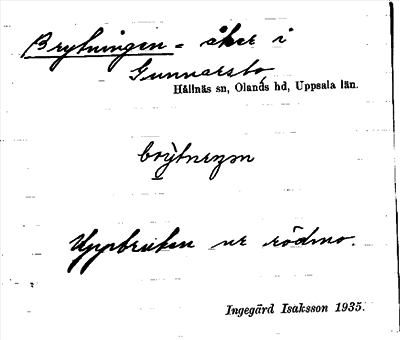 Brytningen - åker i
Gunnarsbo,
Hållnäs sn, Olands hd, Uppsala län.
Uppbruten ur rödmo.
Ingegärd Isaksson 1935.